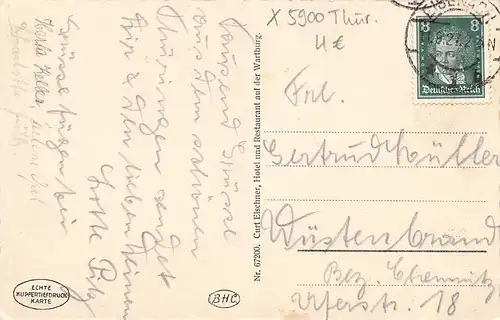 X 5900 Thür.
4€
EISENACH
8 8
Deutsches Reich
Tausend Grüsse
aus dem schönen
Thüringen sendet
Dir u. den lieben Deinen
Lotte
Grüsse fügen bei
Frl.
Gertrud Müller
Wüstenbrand
Bez. Chemnitz
Uferstr. 18
Nr. 67200. Curt Elschner, Hotel und Restaurant auf der Wartburg.
ECHTE
KUPFERTIEFDRUCK
KARTE
BHC